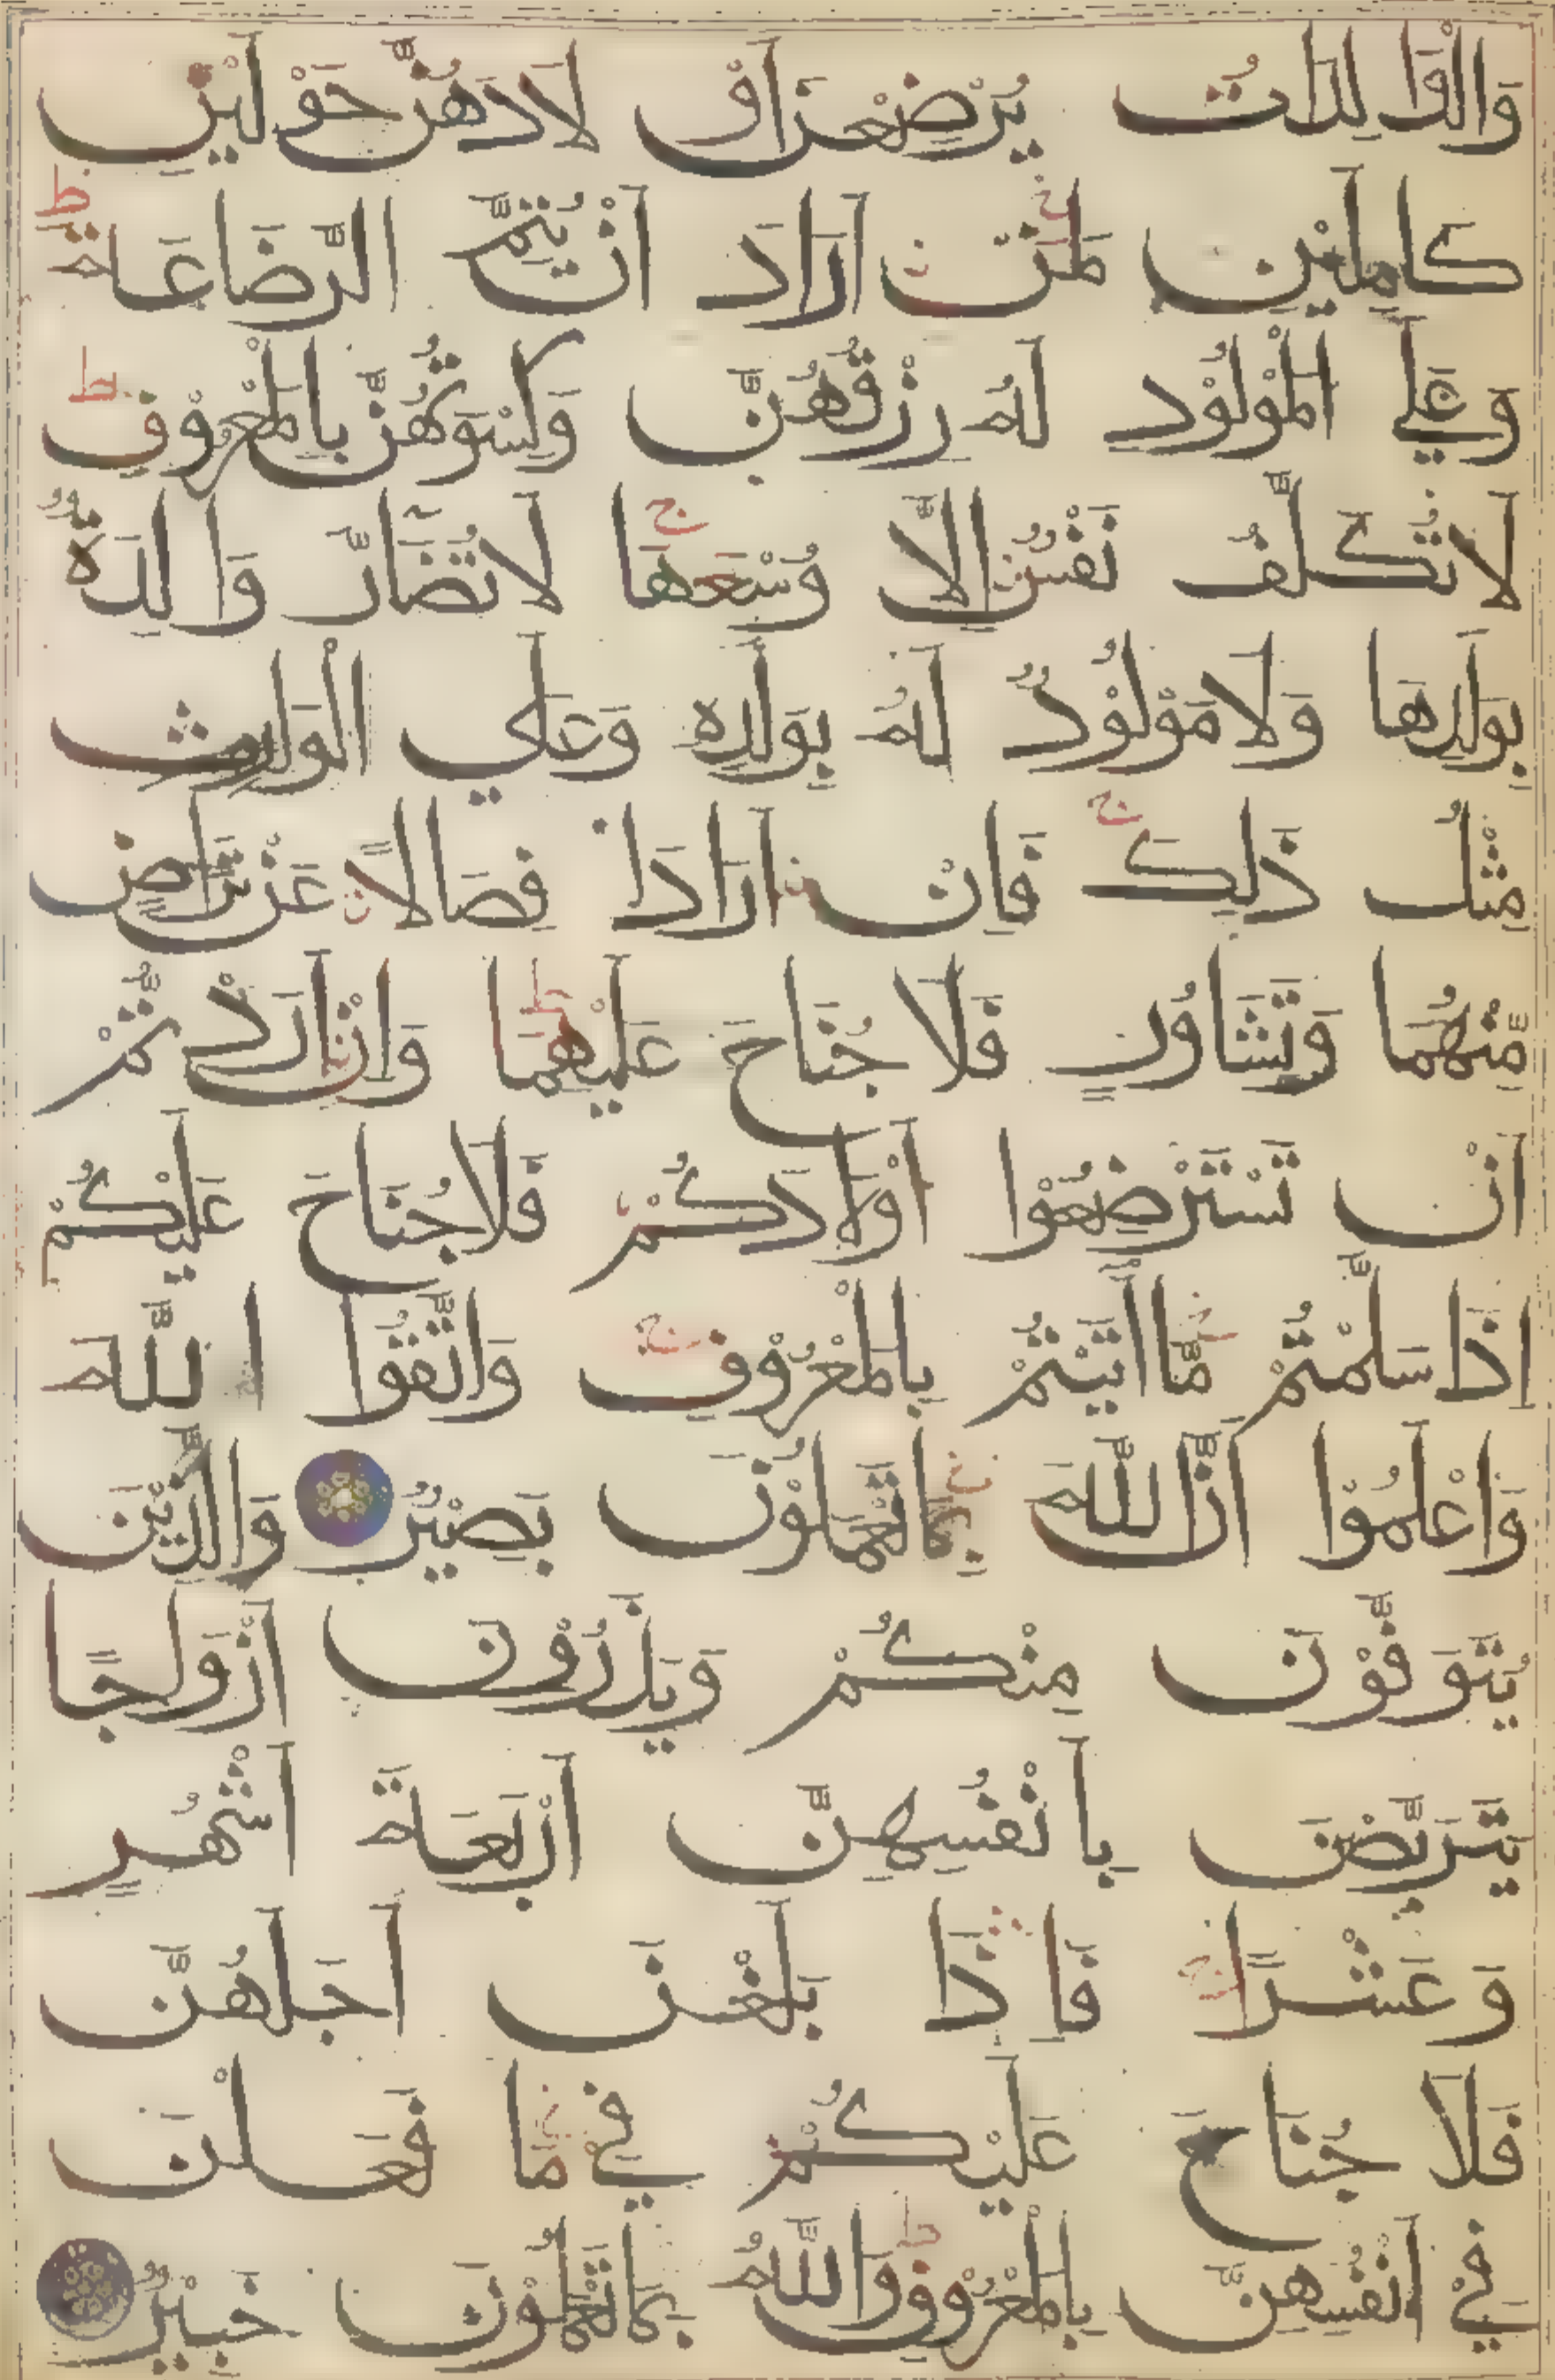 وَالْوَالِدَاتُ يُرْضِعْنَ اَوْلَادَهُنَّ حَوْلَيْنِ
كَامِلَيْنِ لِمَنْ اَرَادَ اَنْ يُتِمَّ الرَّضَاعَةَ ط
وَعَلَي الْمَوْلُوْدِ لَهُ رِزْقُهُنَّ وَكِسْوَتُهُنَّ بِالْمَعْرُوْفِ ط
لَا تُكَلَّفُ نَفْسٌ اِلَّا وُسْعَهَا ج لَا تُضَارَّ وَالِدَةٌ
بِوَلَدِهَا وَلَا مَوْلُوْدٌ لَهُ بِوَلَدِهِ وَعَلَي الْوَارِثِ
مِثْلُ ذَلِكَ ج فَاِنْ اَرَادَا فِصَالًا عَنْ تَرَاضٍ
مِّنْهُمَا وَتَشَاوُرٍ فَلَا جُنَاحَ عَلَيْهِمَا ط وَاِنْ اَرَدْتُّمْ
اَنْ تَسْتَرْضِعُوْا اَوْلَادَكُمْ فَلَا جُنَاحَ عَلَيْكُمْ
اِذَا سَلَّمْتُمْ مَّا اٰتَيْتُمْ بِالْمَعْرُوْفِ وَاتَّقُوا اللَّهَ
وَاعْلَمُوْا اَنَّ اللَّهَ بِمَا تَعْمَلُوْنَ بَصِيْرٌ وَالَّذِيْنَ
يُتَوَفَّوْنَ مِنْكُمْ وَيَذَرُوْنَ اَزْوَاجًا
يَتَرَبَّصْنَ بِاَنْفُسِهِنَّ اَرْبَعَةَ اَشْهُرٍ
وَعَشْرًا ج فَاِذَا بَلَغْنَ اَجَلَهُنَّ
فَلَا جُنَاحَ عَلَيْكُمْ فِيْمَا فَعَلْنَ
فِيْ اَنْفُسِهِنَّ بِالْمَعْرُوْفِ ط وَاللَّهُ بِمَا تَعْمَلُوْنَ خَبِيْرٌ